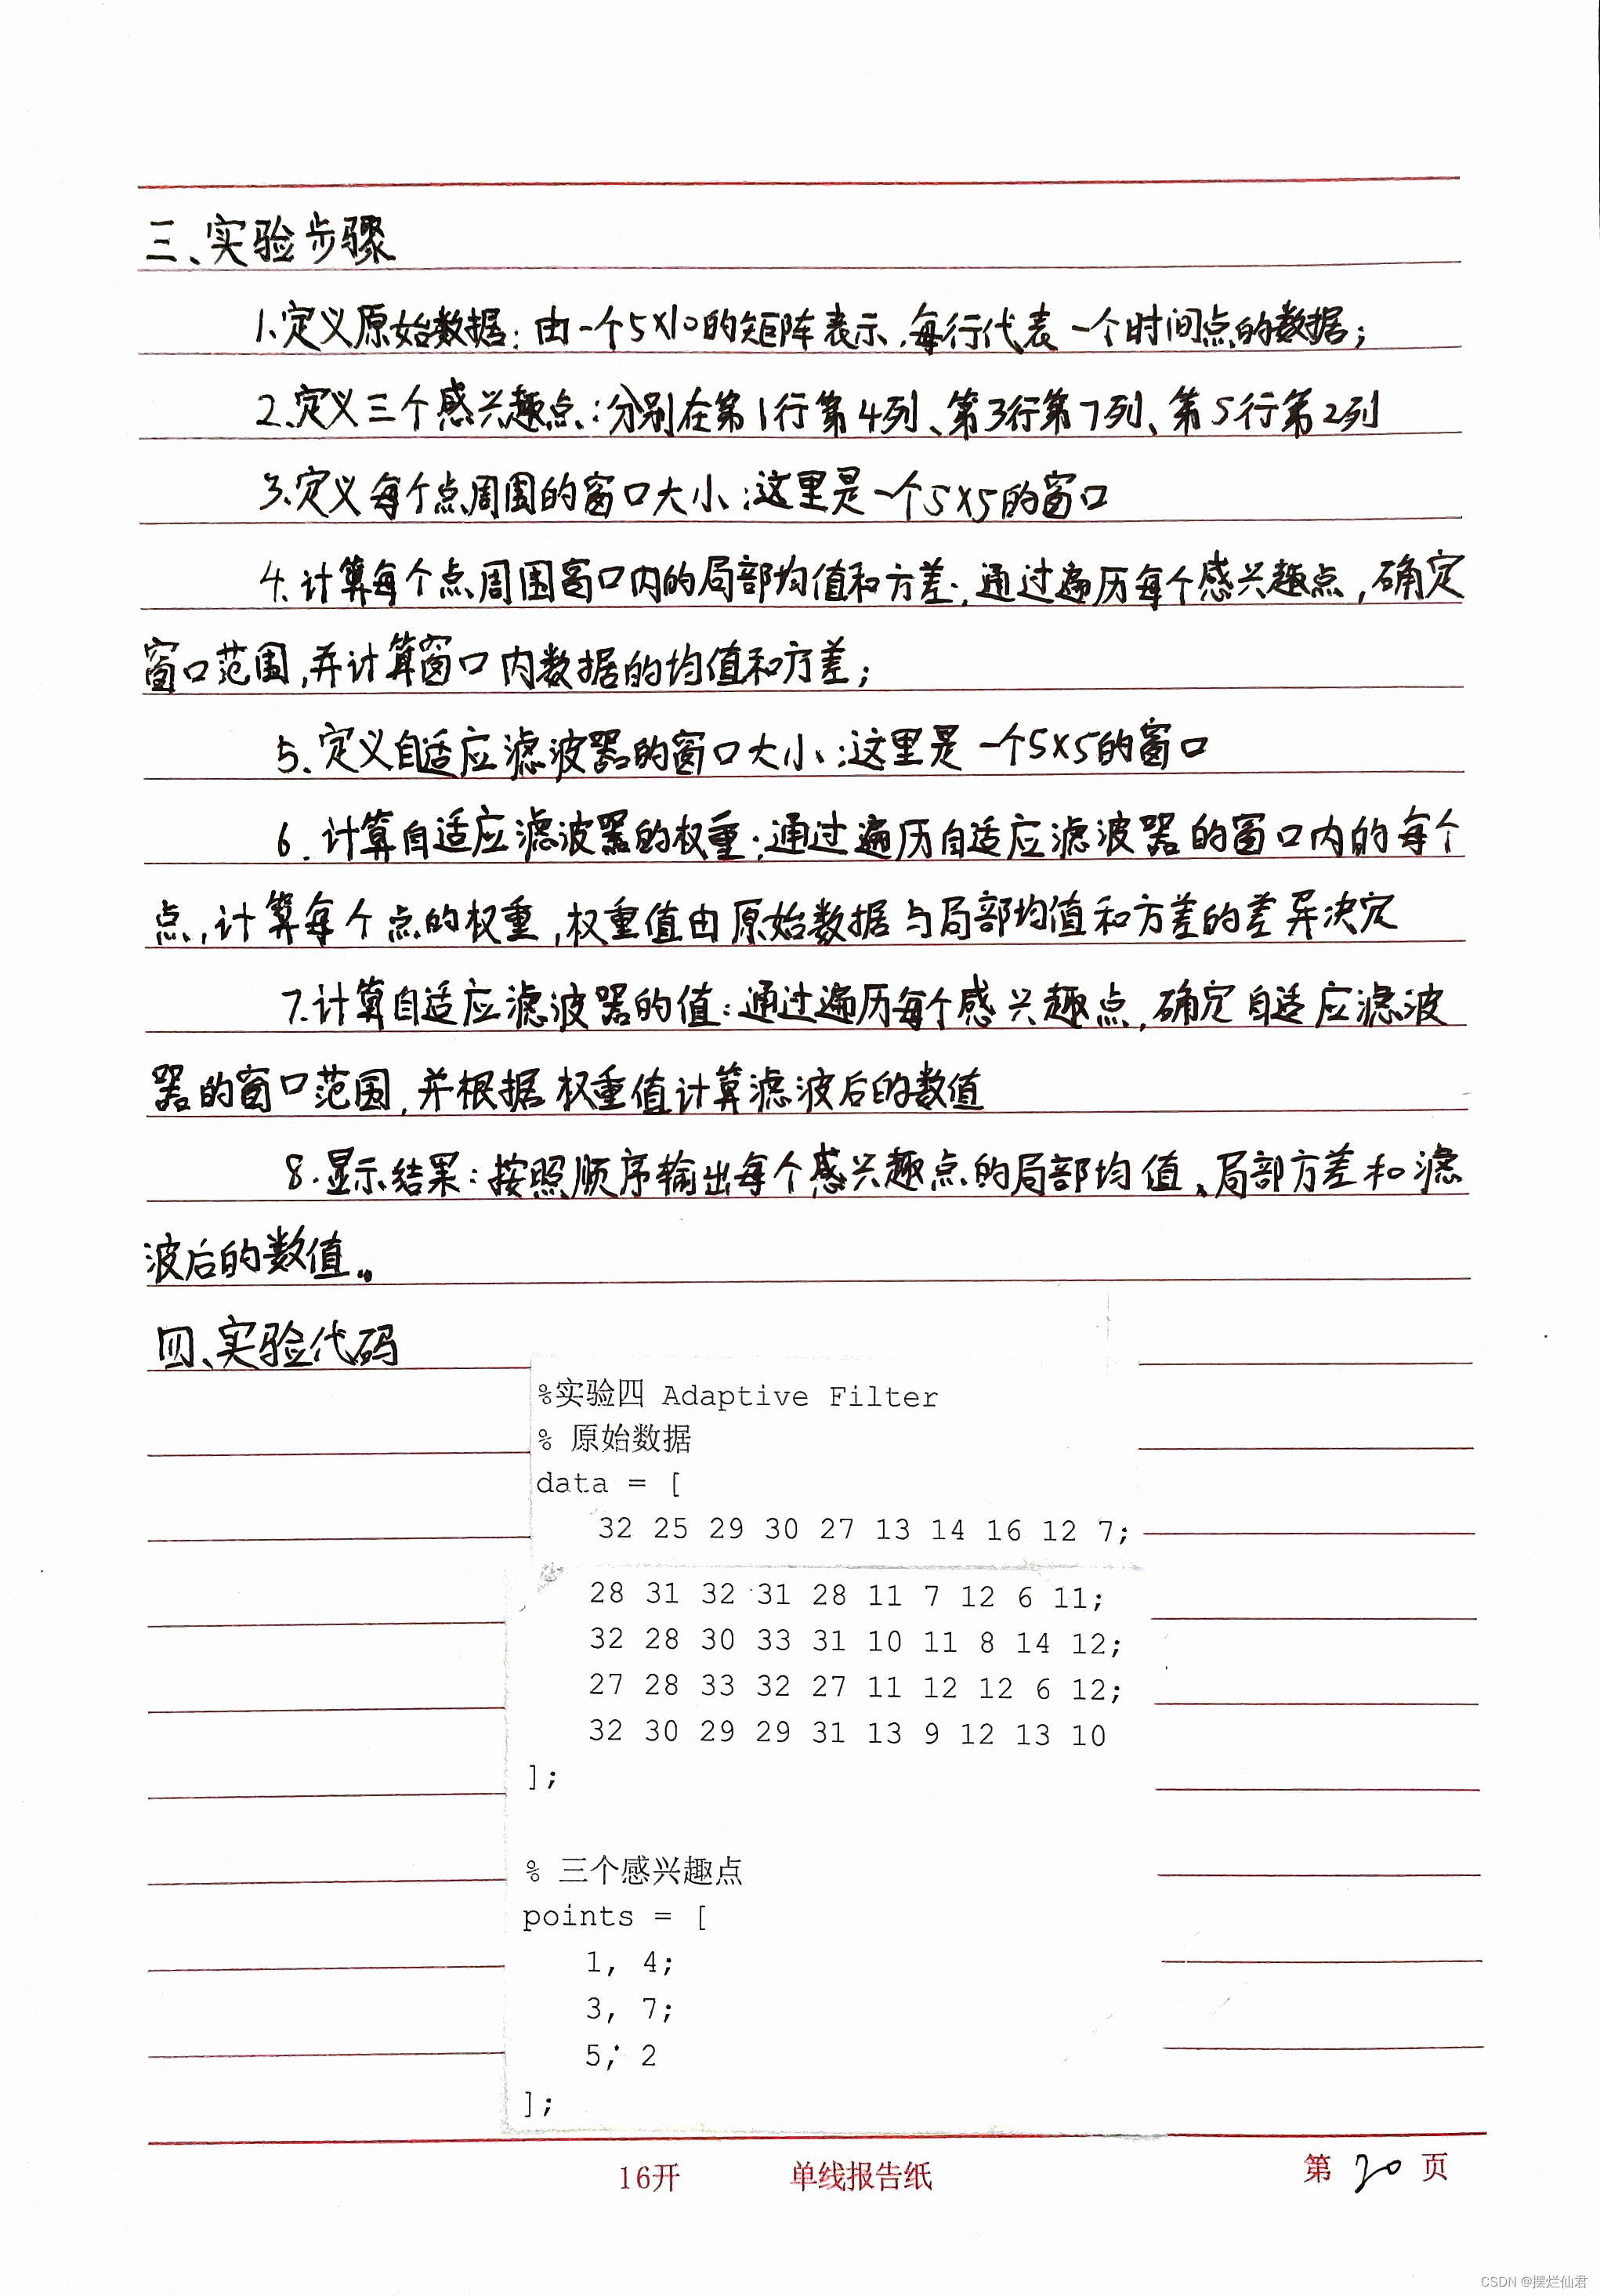 三、实验步骤
1.定义原始数据:由一个5×10的矩阵表示,每行代表一个时间点的数据;
2.定义三个感兴趣点:分别在第1行第4列、第3行第7列、第5行第2列
3.定义每个点周围的窗口大小:这里是一个5×5的窗口
4.计算每个点周围窗口内的局部均值和方差:通过遍历每个感兴趣点,确定
窗口范围,并计算窗口内数据的均值和方差;
5.定义自适应滤波器的窗口大小:这里是一个5×5的窗口
6.计算自适应滤波器的权重:通过遍历自适应滤波器的窗口内的每个
点,计算每个点的权重,权重值由原始数据与局部均值和方差的差异决定
7.计算自适应滤波器的值:通过遍历每个感兴趣点,确定自适应滤波
器的窗口范围,并根据权重值计算滤波后的数值
8.显示结果:按照顺序输出每个感兴趣点的局部均值、局部方差和滤
波后的数值。
四、实验代码
%实验四 Adaptive Filter
% 原始数据
data = [
32 25 29 30 27 13 14 16 12 7;
28 31 32 31 28 11 7 12 6 11;
32 28 30 33 31 10 11 8 14 12;
27 28 33 32 27 11 12 12 6 12;
32 30 29 29 31 13 9 12 13 10
];
% 三个感兴趣点
points = [
1, 4;
3, 7;
5, 2
];
16开 单线报告纸 第 20 页
CSDN @摆烂仙君